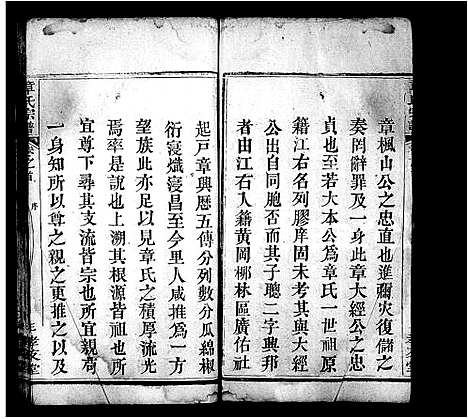 章楓山公之忠直也進彌災復儲之
奏罔辭罪及一身此章大經公之忠
貞也至若大本公為章氏一世祖原
籍江右名列膠庠固未考其與大經
公出自同胞否而其子聰二字興邦
者由江右入籍黃岡梛林區廣佑社
起戸章興歷五傳分列數分瓜綿椒
衍寖熾寖昌至今里人咸推為一方
望族此亦足以見章氏之積厚流光
焉率是以上溯其根源皆祖也所
宜尊下尋其支流皆宗也所宜親苟
一身知所以尊之親之更推之以及
章氏宗譜
卷之首
序
孝友堂